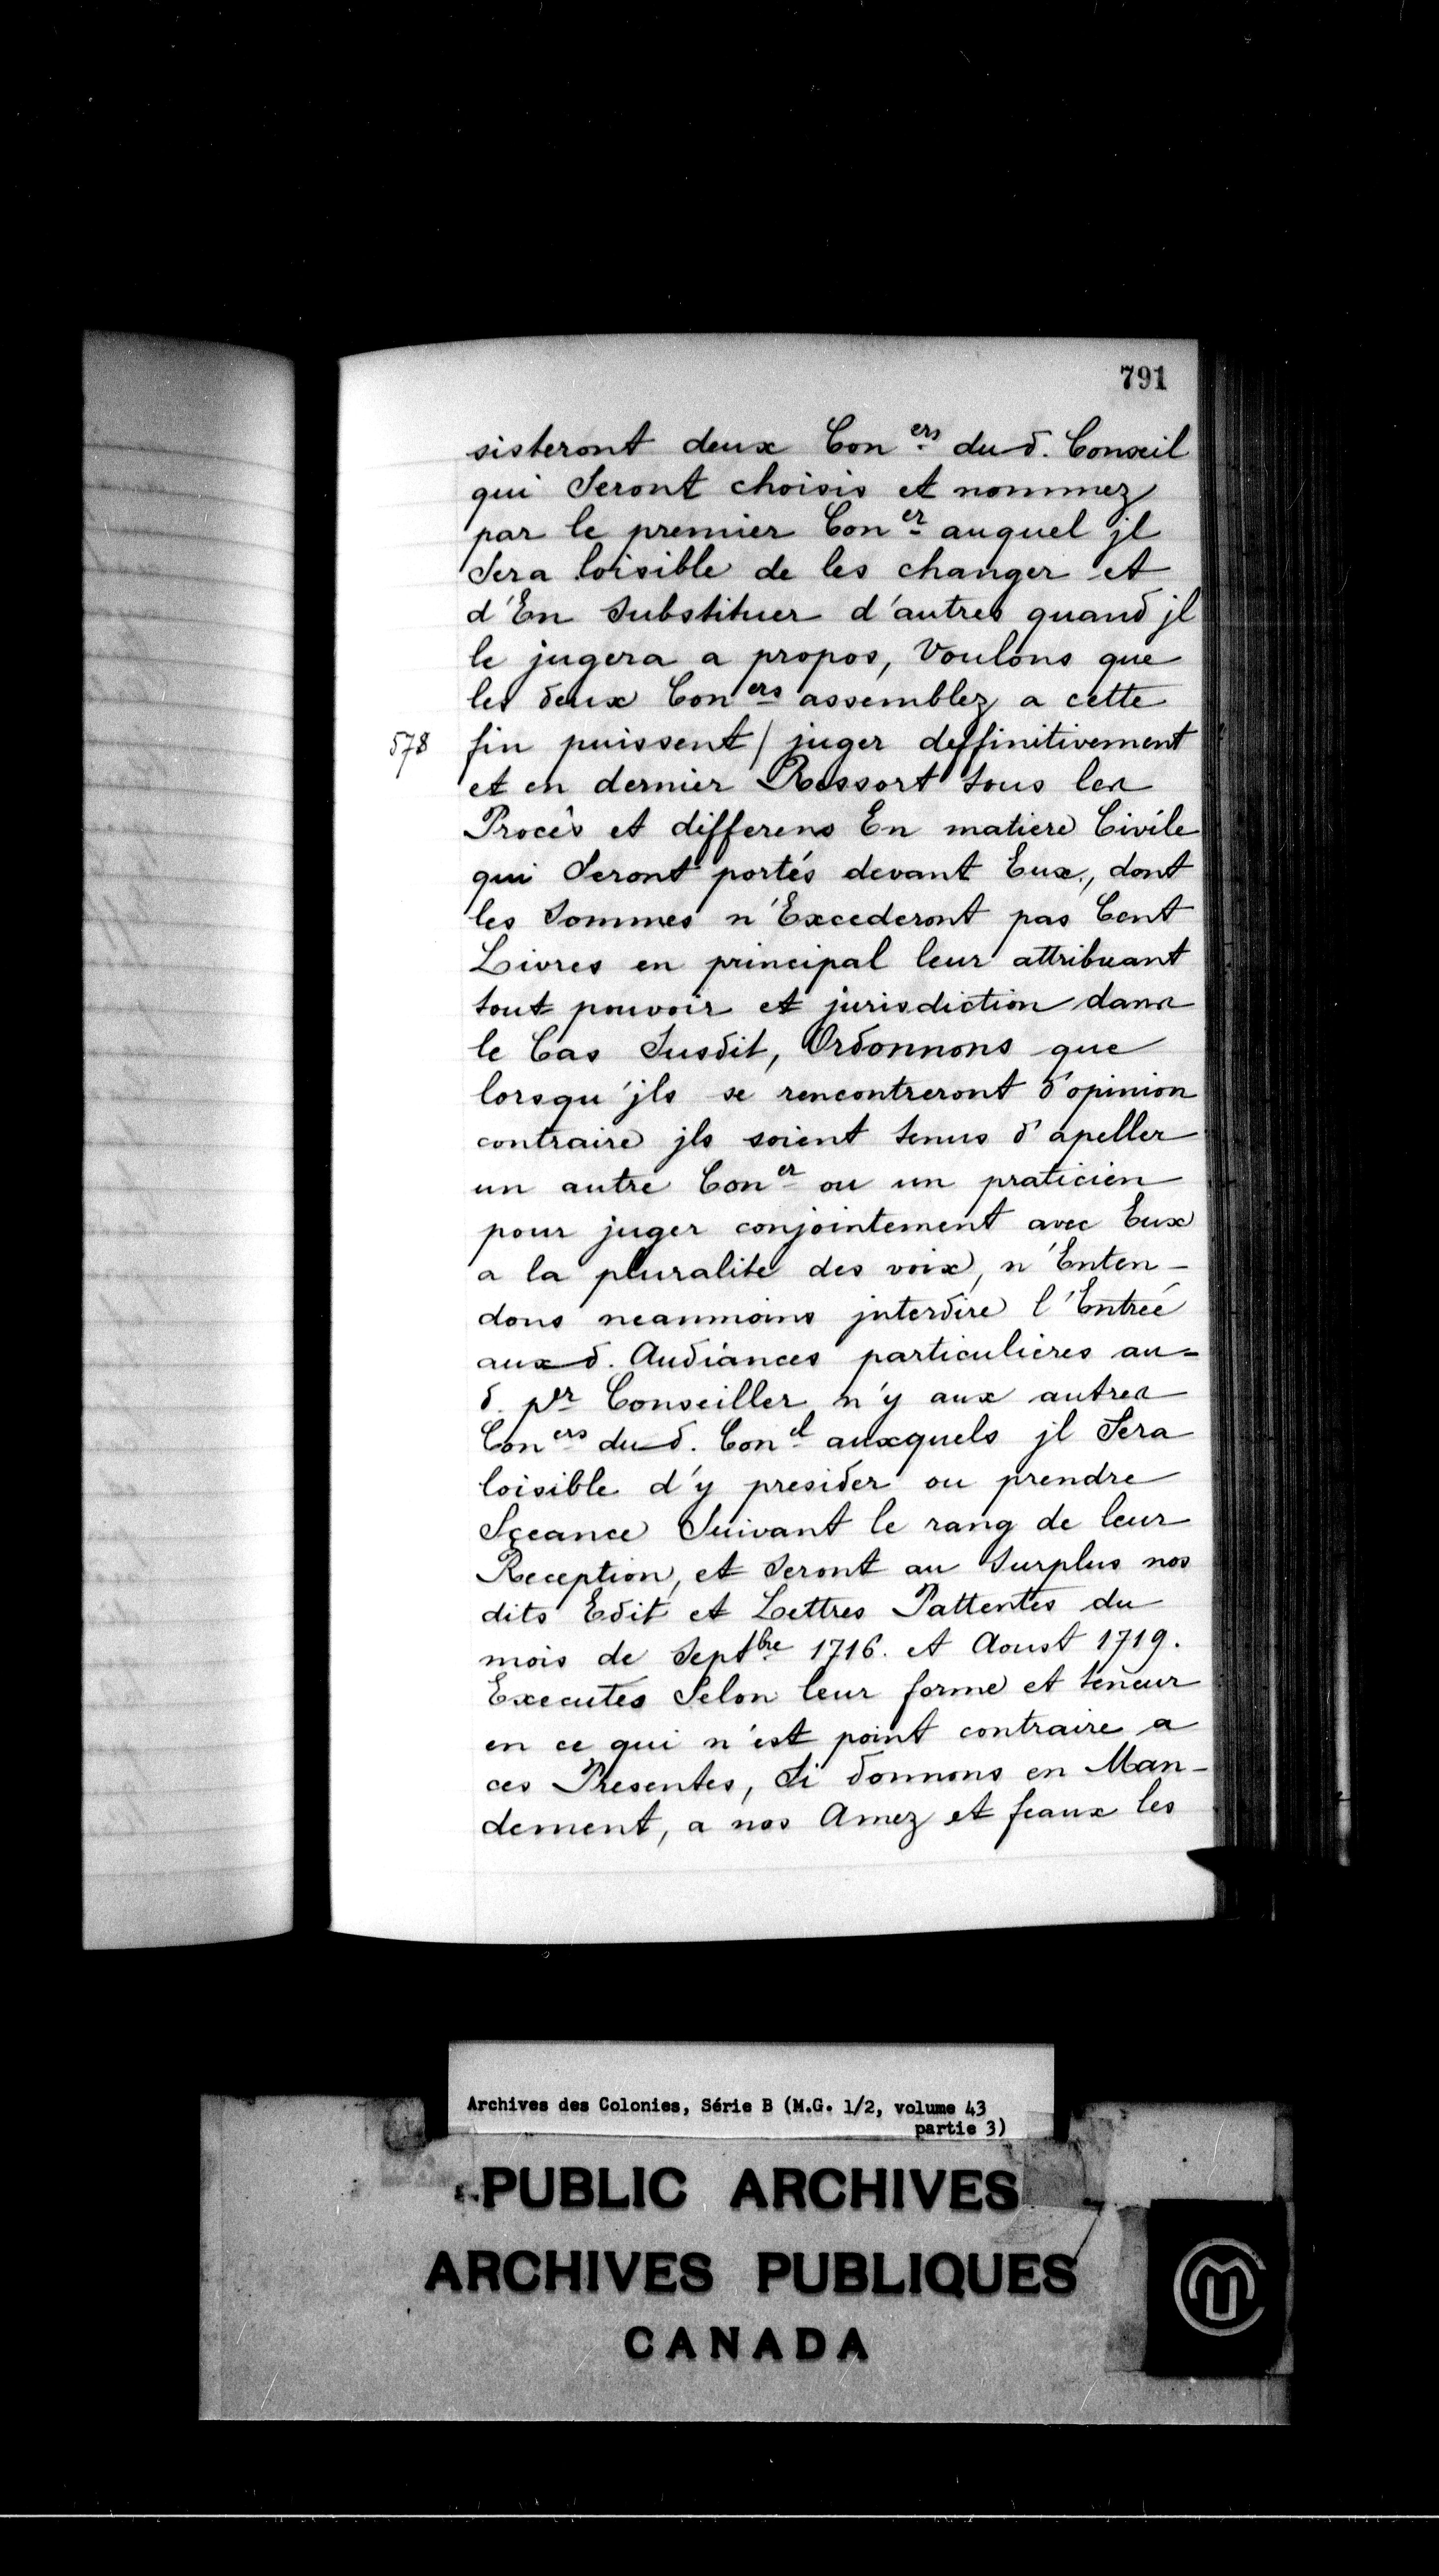 791
sisteront deux Con ers du d. Conseil
qui Seront choisis et nommez
par le premier Con er auquel jl
Sera loisible de les changer et
d'En Substituer d'autres quand jl
le jugera a propos, Voulons que
les deux Con ers assemblez a cette
578 fin puissent / juger deffinitivement
et en dernier Ressort tous les
Procès et differens En matiere Civile
qui Seront portés devant Eux, dont
les Sommes n'Excederont pas Cent
Livres en principal leur attribuant
tout pouvoir et jurisdiction dans
le Cas Susdit, Ordonnons que
lorsqu'jls se rencontreront d'opinion
contraire jls soient tenus d'apeller
un autre Con er ou un praticien
pour juger conjointement avec Eux
a la pluralité des voix, n'Enten-
dons neanmoins jnterdire l'Entreé
aux d. Audiances particulieres au=
d. pr Conseiller n'y aux autres
Con ers du d. Con el auxquels jl Sera
loisible d'y presider ou prendre
Sçeance Suivant le rang de leur
Reception, et Seront au Surplus nos
dits Edit et Lettres Pattentes du
mois de Septbre 1716. et Aoust 1719.
Executés Selon leur forme et teneur
en ce qui n'est point contraire a
ces Presentes, Si donnons en Man-
dement, a nos Amez et feaux les
Archives des Colonies, Série B (M.G. 1/2, volume 43
partie 3)
PUBLIC ARCHIVES
ARCHIVES PUBLIQUES
CANADA